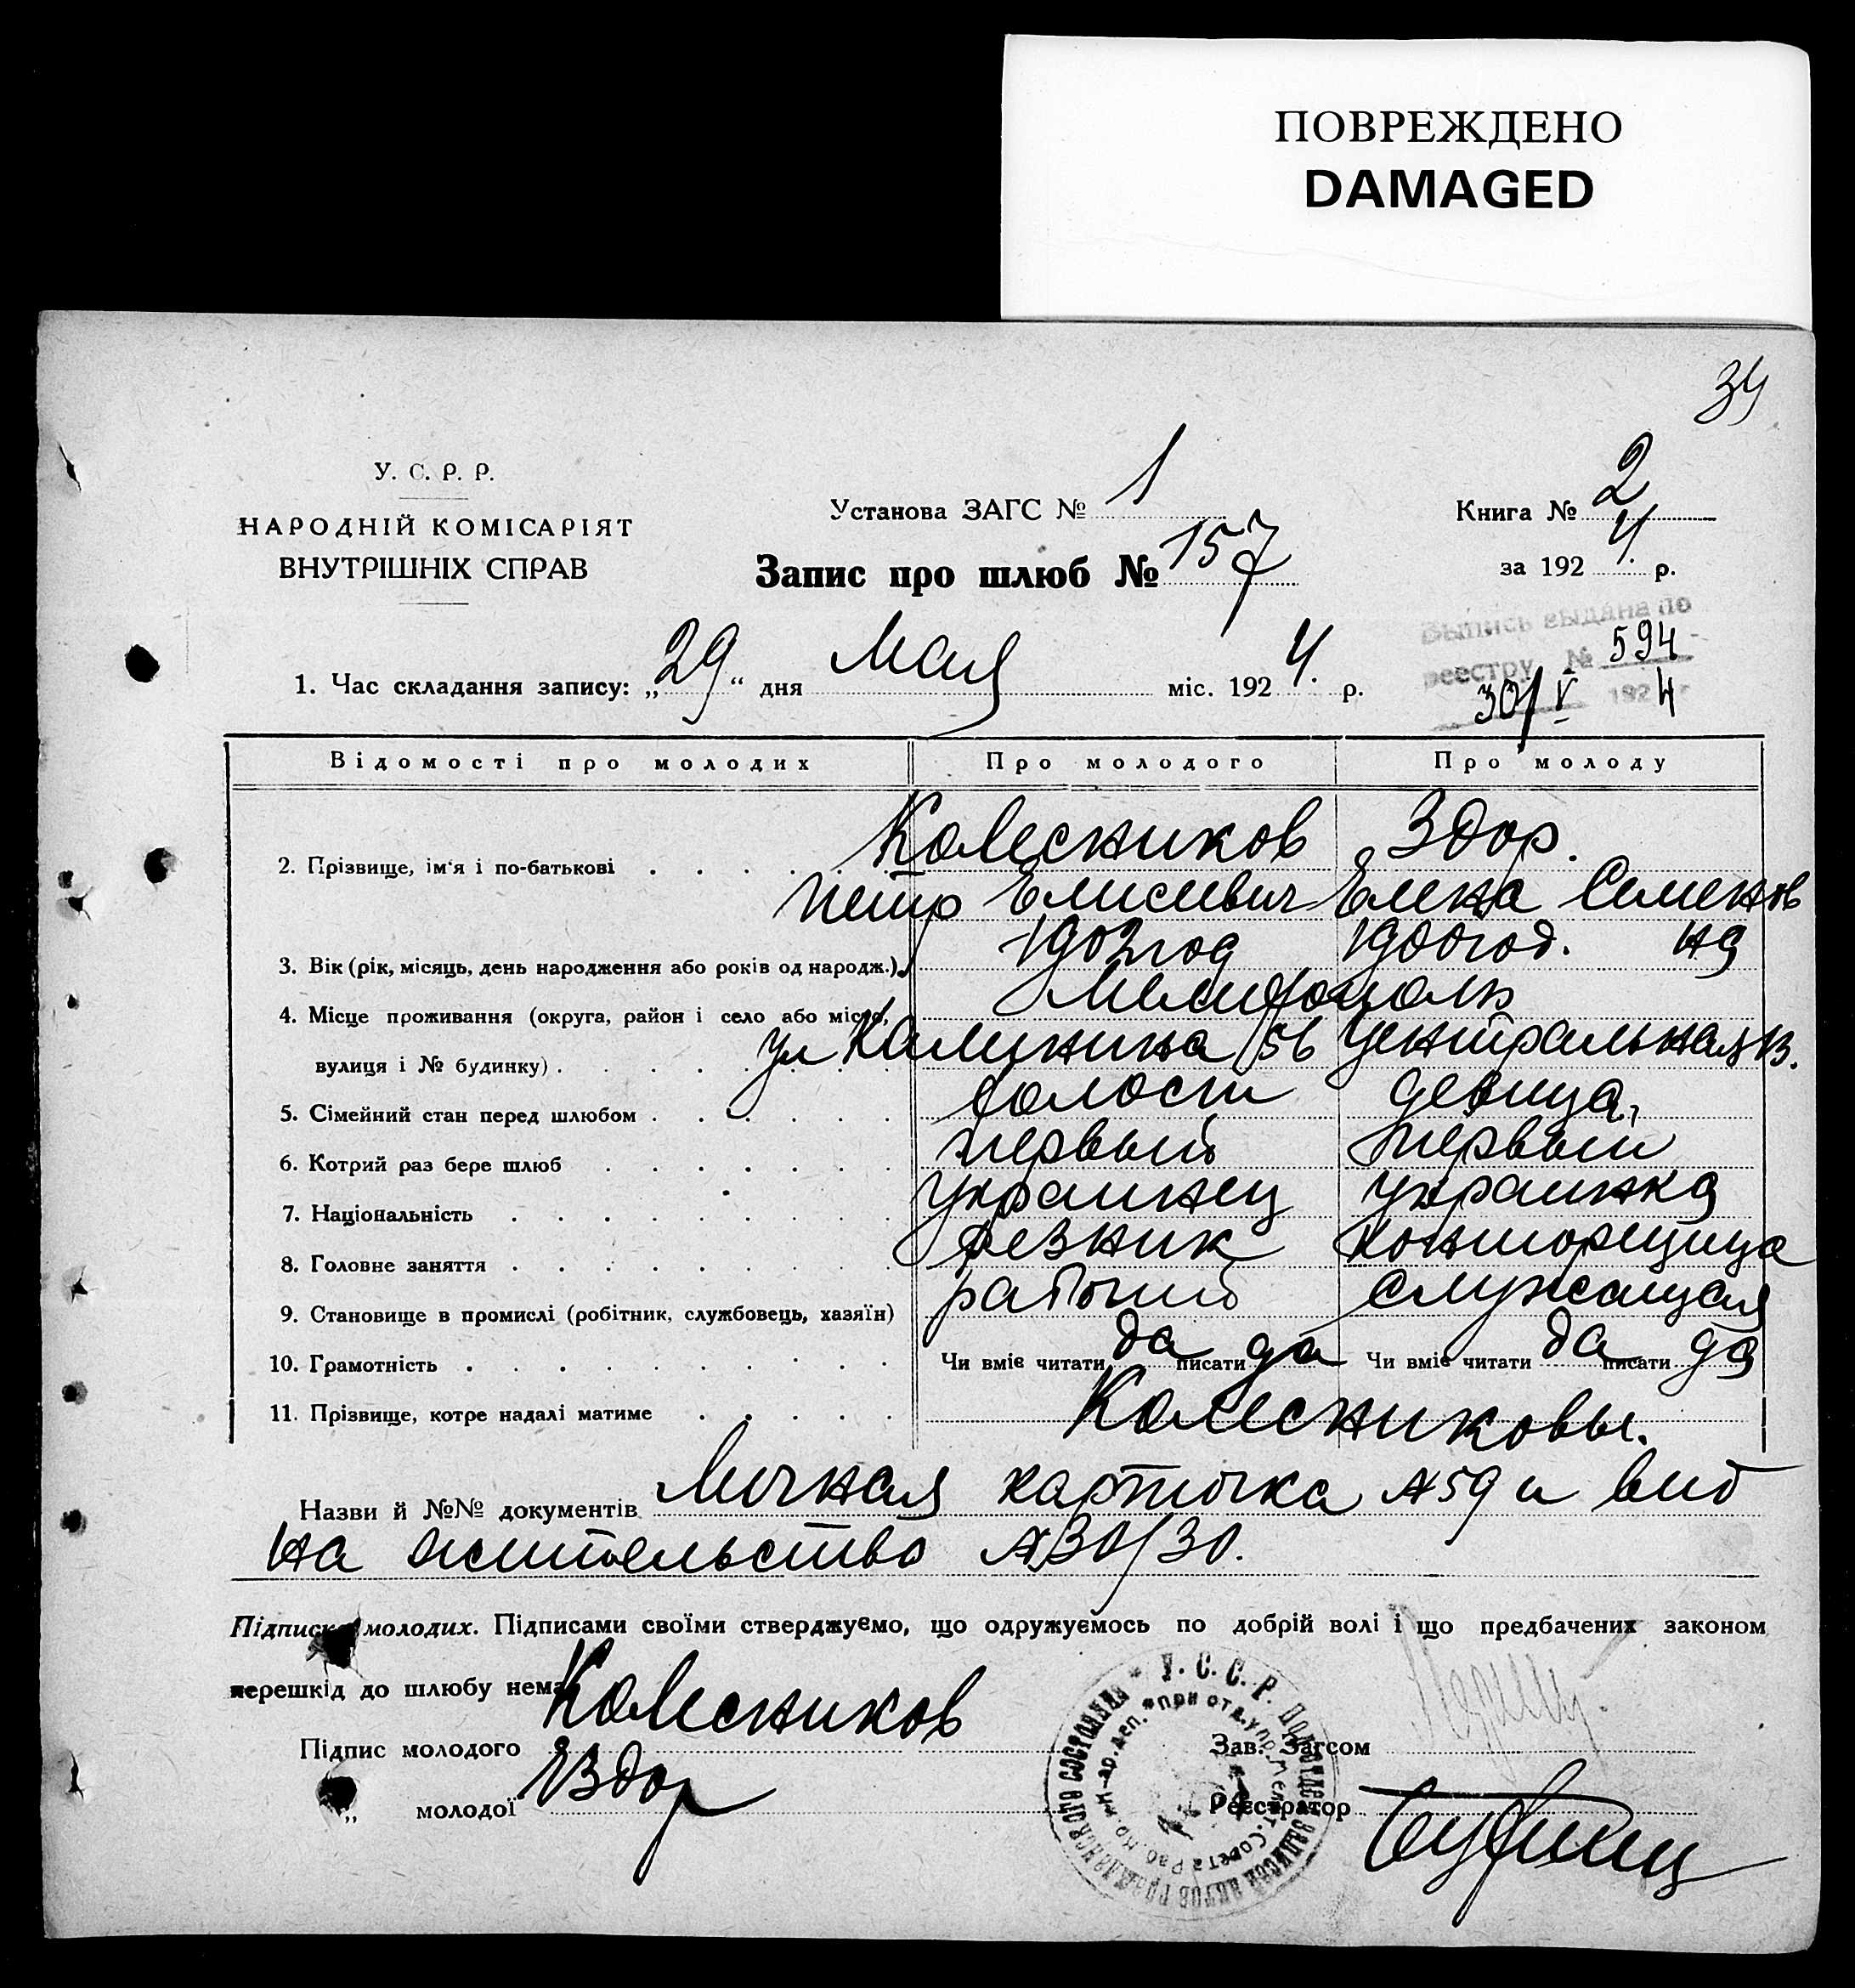 ПОВРЕЖДЕНО
DAMAGED
34
У. С. Р. Р.
НАРОДНІЙ КОМІСАРІЯТ
ВНУТРІШНІХ СПРАВ
Установа ЗАГС № 1
Запис про шлюб № 157
Книга № 2
за 1924. р.
Выпись выдана по
реестру № 594
30/V 1924
1. Час складання запису: „29“ дня Мая міс. 1924. р.
Відомості про молодих Про молодого Про молоду
2. Прізвище, ім'я і по-батькові Колесников Здор.
Петр Елисеевич Елена Семенов
на
3. Вік (рік, місяць, день народження або років од народж.) 1902 год 1900 год.
4. Місце проживання (округа, район і село або місто, Мелитополь
вулиця і № будинку) ул Калинина 56 Центральная 13.
5. Сімейний стан перед шлюбом холост девица,
6. Котрий раз бере шлюб первый первый
7. Національність украинец украинка
8. Головне заняття резник конторщица
9. Становище в промислі (робітник, службовець, хазяїн) рабочий служащая
10. Грамотність Чи вміє читати да писати да Чи вміє читати да писати да
11. Прізвище, котре надалі матиме Колесниковы.
Назви й №№ документів Личная карточка №59 и вид
на жительство №30/30.
Підписка молодих. Підписами своїми стверджуємо, що одружуємось по добрій волі і що предбачених законом
перешкід до шлюбу нема
Підпис молодого Колесников
„ молодої Здор
Зав. Загсом
Реєстратор
У. С. С. Р. Подотдел записей актов гражданского состояния
при отд. упр. Мелит. Совета Раб. Кр. и Кр-ар. деп.